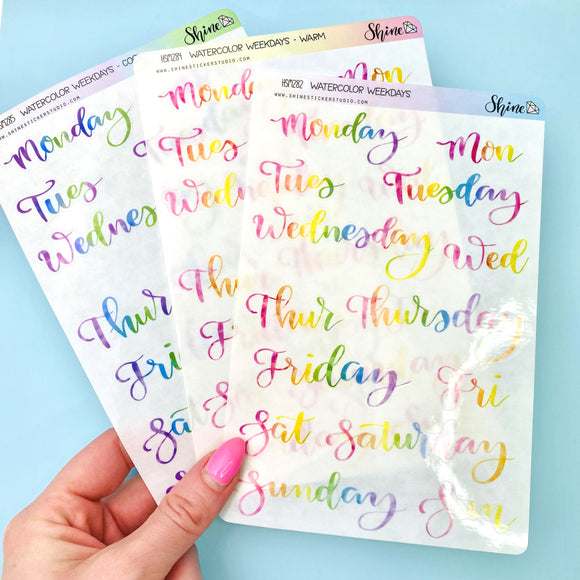 Shine
HSM285 WATERCOLOR WEEKDAYS - COO
WWW.SHINESTICKERSTUDIO.COM
Monday
Tues
Wednes
Thur
Friday
Sat
Shine
HSM284 WATERCOLOR WEEKDAYS - WARM
WWW.SHINESTICKERSTUDIO.COM
Monday Mon
Tues
Wedn
Thu
Fri
Shine
HSM282 WATERCOLOR WEEKDAYS
WWW.SHINESTICKERSTUDIO.COM
Monday Mon
Tues Tuesday
Wednesday Wed
Thur Thursday
Friday Fri
Sat Saturday
Sunday Sun